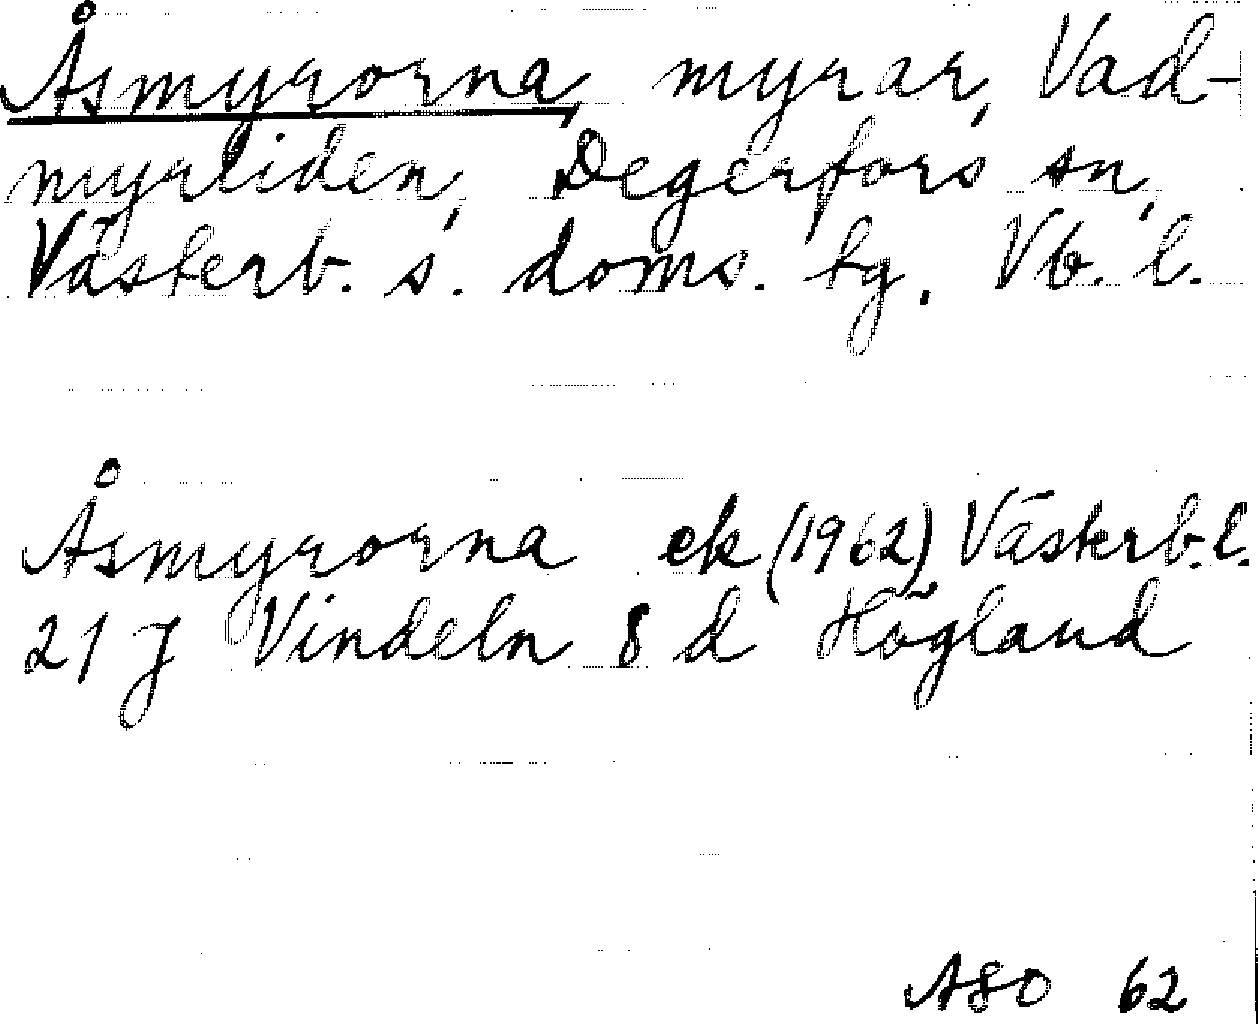 Åsmyrorna, myrar, Vad-
myrliden, Degerfors sn,
Västerb. s. doms. tg. Vb. l.
Åsmyrorna ek (1962) Västerb. l.
21 J Vindeln 8 d Högland
ASO 62